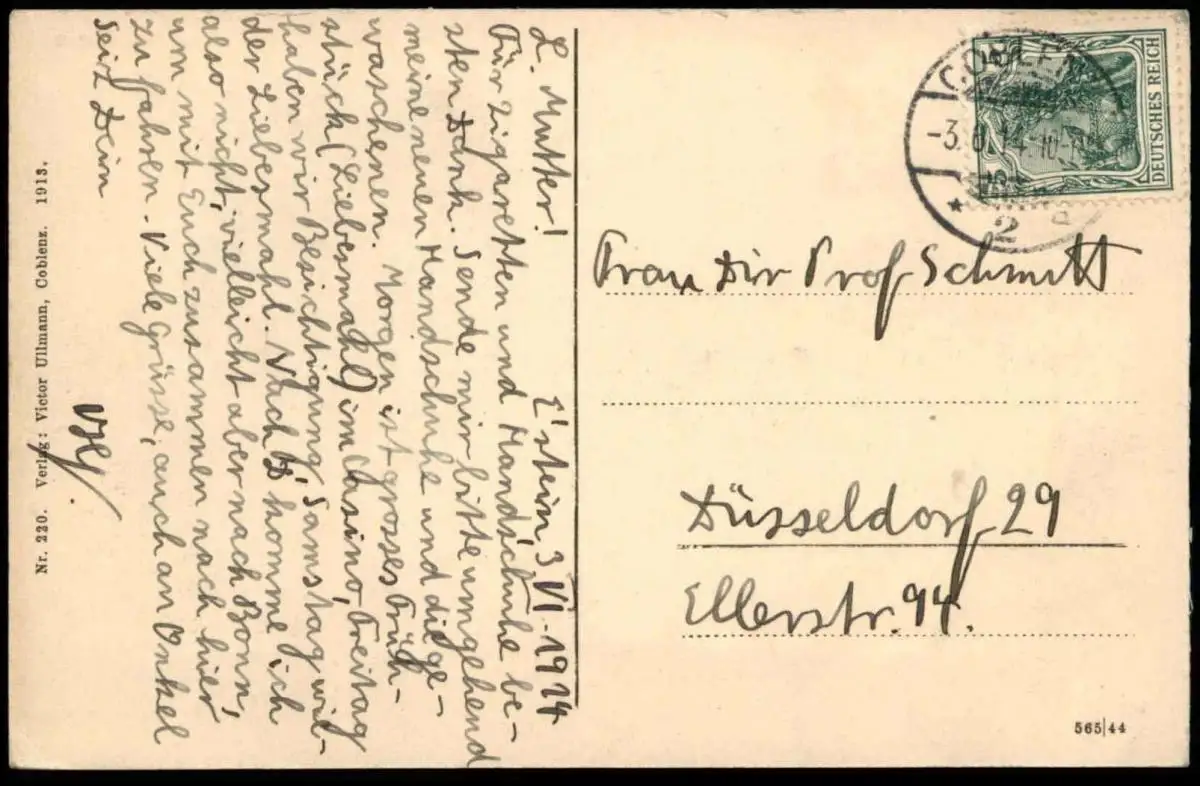 E'stein 3 VI. 1914
L. Mutter!
Für Zigaretten und Handschuhe be-
sten Dank. Sende mir bitte umgehend
meine neuen Handschuhe und die ge-
waschenen. Morgen ist grosses Früh-
stück (Liebesmahl) im Casino, Freitag
haben wir Besichtigung, Samstag wie-
der Liebesmahl. Nach D. komme ich
also nicht, vielleicht aber nach Bonn,
um mit Euch zusammen nach hier
zu fahren. Viele Grüsse, auch an Onkel
Seitz Dein
Nr. 220. Verlag: Victor Ullmann, Coblenz. 1913.
COBLENZ
-3.6.14. 10-
* 2
DEUTSCHES REICH
5
Frau Dir Prof Schmitt
Düsseldorf 29
Ellerstr. 94.
565|44